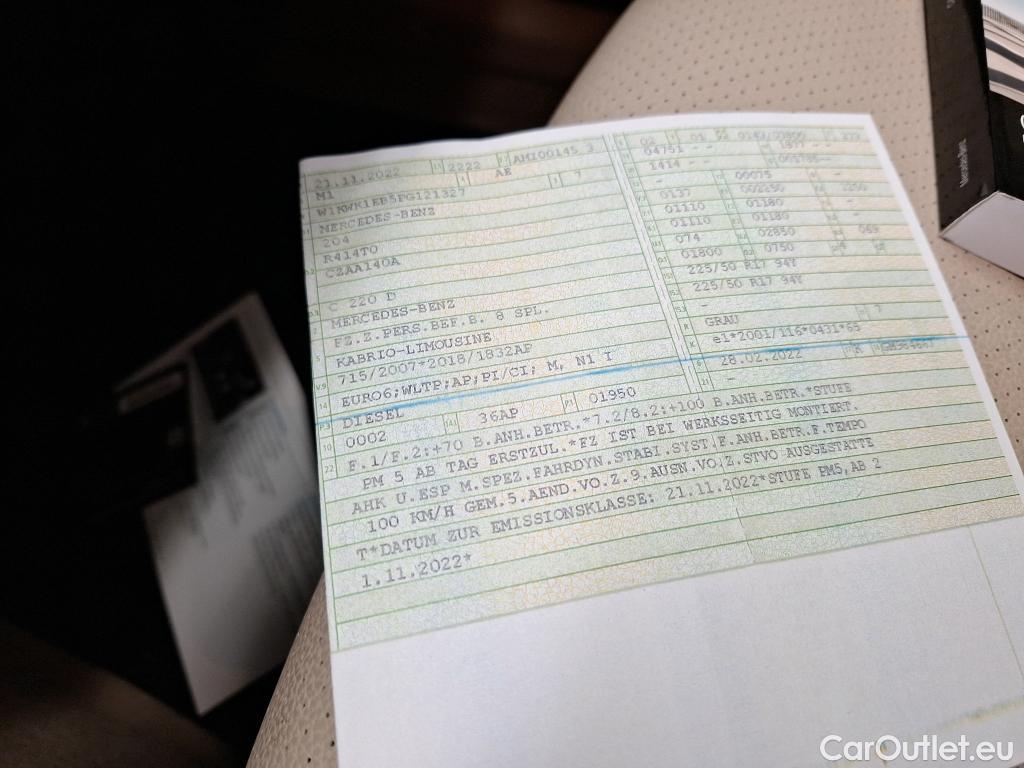 21.11.2022 2222 AMI00145 3
M1 AE
W1KWK1EB5PG121327 7
MERCEDES-BENZ
204
R414T0
CZAA140A
C 220 D
MERCEDES-BENZ
FZ.Z.PERS.BEF.B. 8 SPL.
KABRIO-LIMOUSINE
715/2007*2018/1832AP
EURO6;WLTP;AP;PI/CI; M, N1 I
DIESEL
0002 36AP 01950
01
04751 - - 1877 - -
1414 - -
- 00075 -
0137 002250
01110 01180 -
01110 01180 -
074 02850 069
01800 0750
225/50 R17 94Y
225/50 R17 94Y
-
GRAU 7
e1*2001/116*0431*65
28.02.2022 K
-
F.1/F.2:+70 B.ANH.BETR.*7.2/8.2:+100 B.ANH.BETR.*STUFE
PM 5 AB TAG ERSTZUL.*FZ IST BEI WERKSSEITIG MONTIERT.
AHK U.ESP M.SPEZ.FAHRDYN.STABI.SYST.F.ANH.BETR.F.TEMPO
100 KM/H GEM.5.AEND.VO.Z.9.AUSN.VO.Z.STVO AUSGESTATTE
T*DATUM ZUR EMISSIONSKLASSE: 21.11.2022*STUFE PM5,AB 2
1.11.2022*
Mercedes-Benz
CarOutlet.eu